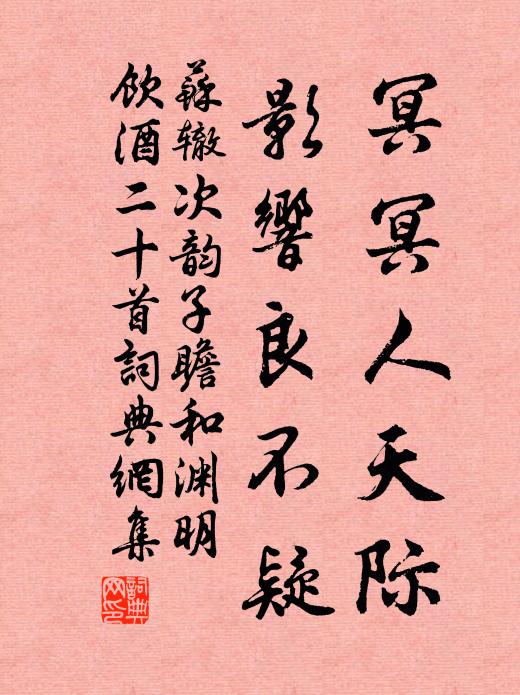 冥冥人天际
影響良不疑
蘇辙次韵子瞻和渊明
飲酒二十首詞典網集
詞典
网印